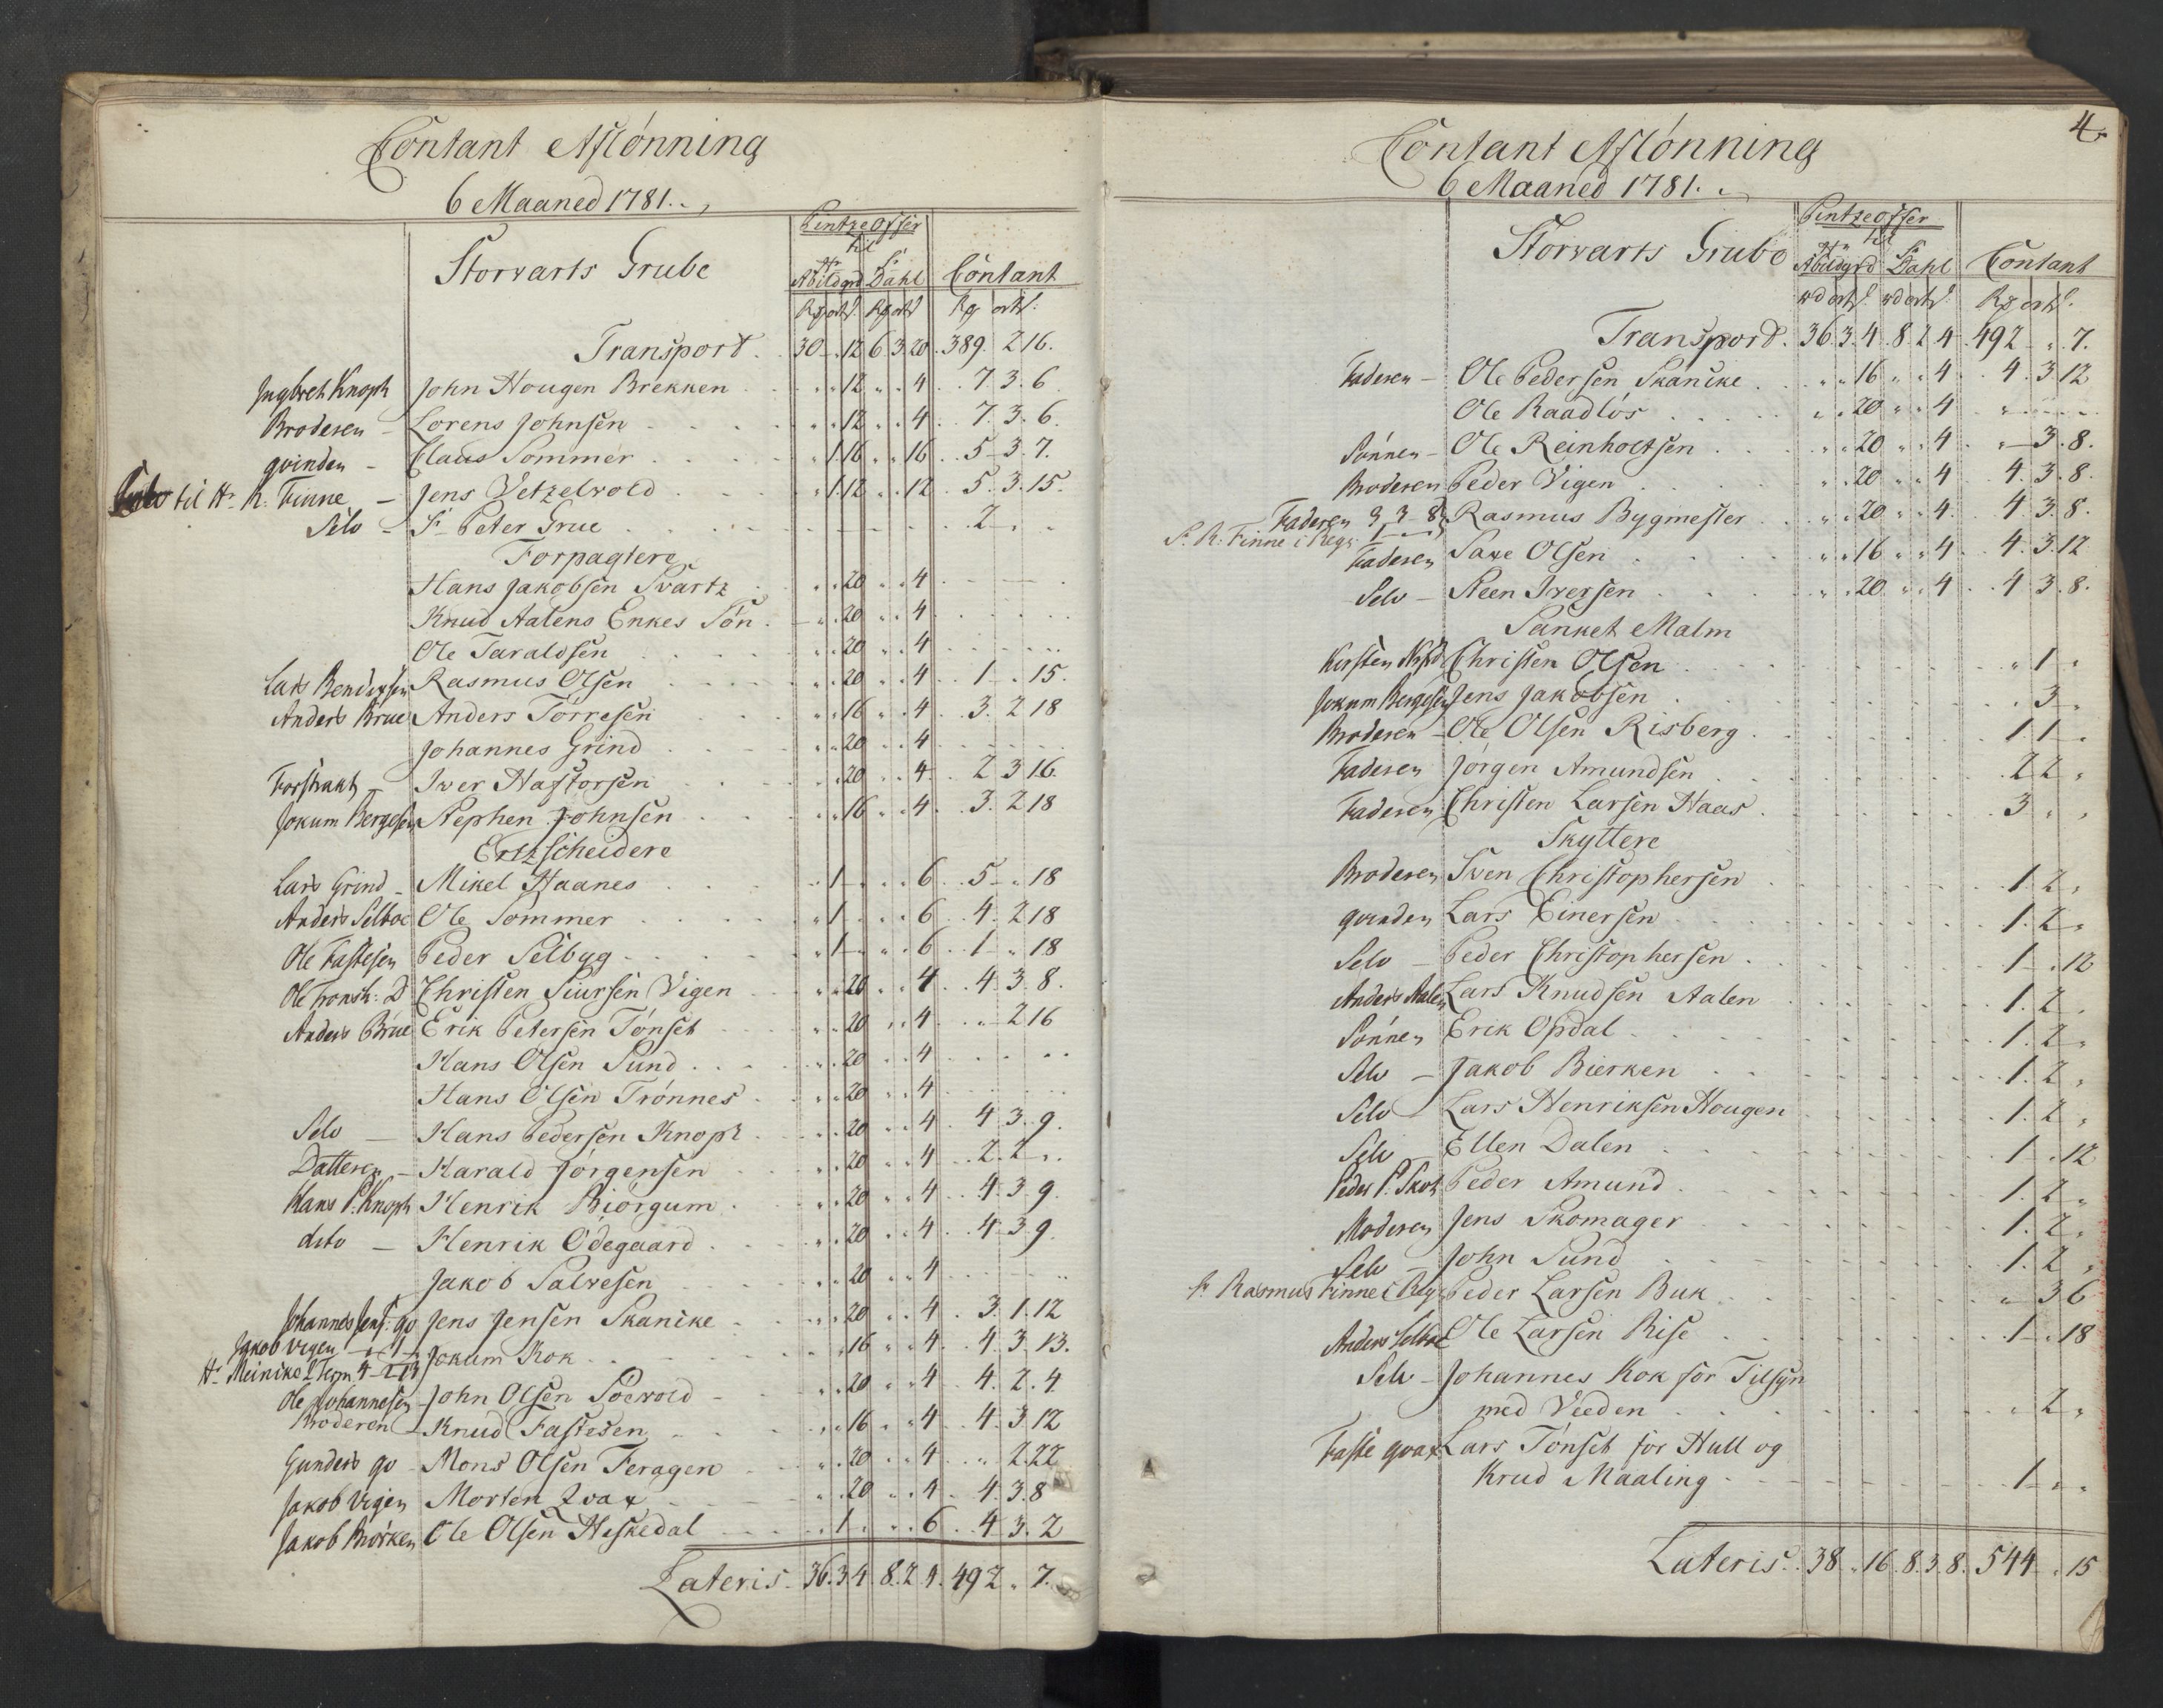 Contant Aflönning
6 Maaned 1781.
Storvarts Grube
Pintzeoffer
til
Hr Abildgrd Sr Dahl Contant
Rd ort s. Rd ort s. Rd ort s.
Transport. 30 " 12 6 3 20 389. 2 16.
Ingbret Knoph John Hougen Brekken " " 12 " " 4 7. 3. 6
Broderen Lorens Johnsen " " 12 " " 4 7. 3. 6.
qvinden Claus Sommer " 1. 16 " " 16 5 3 7.
til Hr R. Finne Jens Vetzelvold " 1. 12 " " 12 5. 3. 15.
Selv Sr Peter Grue 2 " "
Forpagtere
Hans Jakobsen Svartz " " 20 " " 4
Knud Aalens Enkes Sön " " 20 " " 4
Ole Taraldsen " " 20 " " 4
Lars Bendixsen Rasmus Olsen " " 20 " " 4 1 " 15.
Anders Brue Anders Torresen " " 16 " " 4 3. 2 18
Johannes Grind " " 20 " " 4
Forstrakt Iver Hafstorsen " " 20 " " 4 2 3 16.
Jokum Bergesen Stephen Johnsen " " 16 " " 4 3. 2 18
Ertzscheidere
Lars Grind Mikel Haanes " 1 " " " 6 5 " 18
Anders Selboe Ole Sommer " 1 " " " 6 4. 2 18
Ole Fastesen Peder Selbyg " 1 " " " 6 1 " 18
Ole Tronsh: D Christen Siursen Vigen " " 20 " " 4 4 3 8.
Anders Brue Erik Petersen Tönset " " 20 " " 4 " 2 16
Hans Olsen Sund " " 20 " " 4
Hans Olsen Trönnes " " 20 " " 4
Selv Hans Pedersen Knoph " " 20 " " 4 4 3. 9.
Datteren Harald Jörgensen " " 20 " " 4 2. 2 "
Hans P. Knoph Henrik Biörgum " " 20 " " 4 4. 3 9.
dito Henrik Ödegaard " " 20 " " 4 4 3 9.
Jakob Salvesen " " 20 " " 4
Johannes Jens: go Jens Jensen Skancke " " 20 " " 4 3. 1. 12
Jakob Vigen " 1 "
Jokum Kok " " 16 " " 4 4. 3 13.
Hr Meinike 2 Term 4 2 13
Ole Johannesen John Olsen Soevold " " 20 " " 4 4. 2. 4
Broderen Knud Fastesen " " 16 " " 4 4. 3 12
Gunders go Mons Olsen Feragen " " 20 " " 4 " 2. 22
Jakob Vigen Morten Qvax " " 20 " " 4 4. 3. 8
Jakob Biörken Ole Olsen Heskedal " 1. " " " 6 4 3. 2
Lateris. 36. 3 4 8. 2 4. 492 " 7.
4.
Contant Aflönning
6 Maaned 1781.
Storvarts Grube
Pintzeoffer
til
Hr Abildgrd Sr Dahl Contant
rd ort s. rd ort s. Rd ort s.
Transport. 36 3. 4 8 2 4 492 " 7.
Faderen Ole Pedersen Skancke " " 16 " " 4 4. 3 12
Ole Raadlös " " 20 " " 4
Sönnen Ole Reinholtsen " " 20 " " 4 " 3. 8.
Broderen Peder Vigen " " 20 " " 4 4. 3. 8.
Faderen 3 3 8 Rasmus Bygmester " " 20 " " 4. 4 3. 8.
Sr R: Finne i Regn: 1
Faderen Saxe Olsen " " 16 " " 4 4. 3. 12
Selv Steen Iversen " " 20 " " 4 4 3. 8.
Sanket Malm
Christen Olsen " 1 "
Jokum Bergesen Jens Jakobsen " 3 "
Broderen Ole Olsen Risberg 1 1 "
Faderen Jörgen Amundsen 2 2 "
Faderen Christen Larsen Haas 3 " "
Skyttere
Broderen Sven Christophersen 1. 2 "
qvinden Lars Einersen 1. 2 "
Selv Peder Christophersen 1 " 12
Anders Aalen Lars Knudsen Aalen 1. 2 "
Sönnen Erik Opdal 1. 2 "
Selv Jakob Bierken 1. 2 "
Selv Lars Henriksen Hougen 1. 2 "
Selv Ellen Dalen 1 " 12
Peder P: Skot Peder Amund 1. 2 "
Moderen Jens Skomager 1. 2 "
Selv John Sund 1. 2 "
Sr Rasmus Finne i Regn Peder Larsen Buk " 3 6
Anders Selboe Ole Larsen Rise 1 " 18
Selv Johannes Kok for Tilsyn
med Veeden " 2 "
Faste qvax Lars Tönset for Hull og
Krud Maaling 1 " "
Lateris. 38 " 16 8. 3. 8. 544 " 15